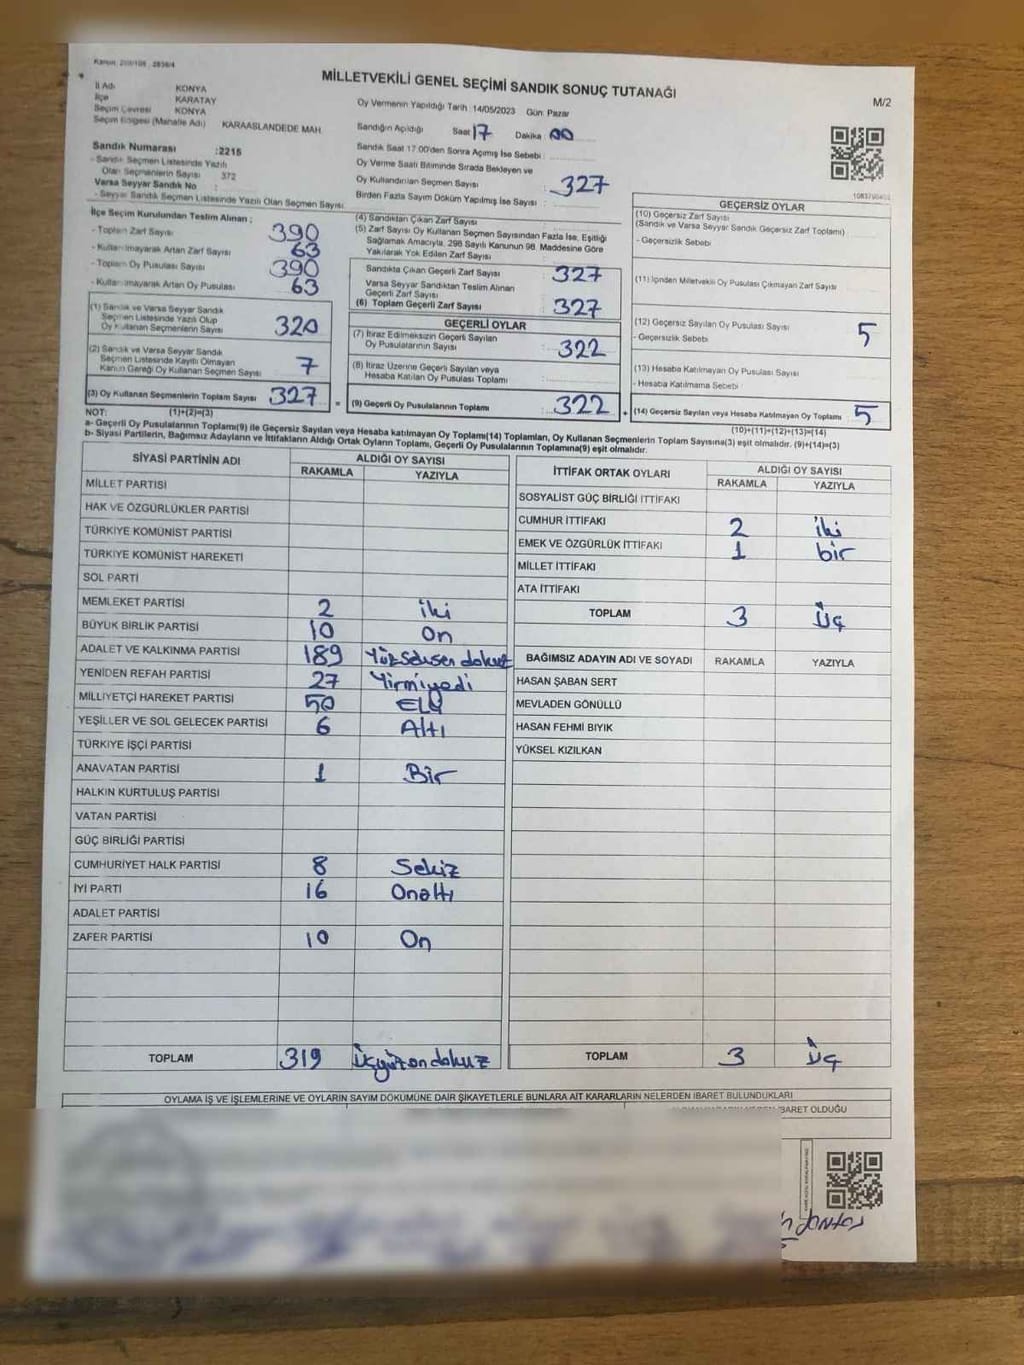 Kanun 298/108 2839/4
MİLLETVEKİLİ GENEL SEÇİMİ SANDIK SONUÇ TUTANAĞI
M/2
İl Adı KONYA
İlçe KARATAY
Seçim Çevresi KONYA
Seçim Bölgesi (Mahalle Adı) KARAASLANDEDE MAH.
Sandık Numarası :2215
- Sandık Seçmen Listesinde Yazılı
Olan Seçmenlerin Sayısı 372
Varsa Seyyar Sandık No :
- Seyyar Sandık Seçmen Listesinde Yazılı Olan Seçmen Sayısı
Oy Vermenin Yapıldığı Tarih :14/05/2023 Gün: Pazar
Sandığın Açıldığı Saat 17 Dakika : 00
Sandık Saat 17.00'den Sonra Açımış İse Sebebi :
Oy Verme Saati Bitiminde Sırada Bekleyen ve
Oy Kullandırılan Seçmen Sayısı : 327
Birden Fazla Sayım Döküm Yapılmış İse Sayısı :
İlçe Seçim Kurulundan Teslim Alınan ;
- Toplam Zarf Sayısı 390
- Kullanılmayarak Artan Zarf Sayısı 63
- Toplam Oy Pusulası Sayısı 390
- Kullanılmayarak Artan Oy Pusulası 63
(1) Sandık ve Varsa Seyyar Sandık
Seçmen Listesinde Yazılı Olup
Oy Kullanan Seçmenlerin Sayısı 320
(2) Sandık ve Varsa Seyyar Sandık
Seçmen Listesinde Kayıtlı Olmayan
Kanun Gereği Oy Kullanan Seçmen Sayısı 7
(3) Oy Kullanan Seçmenlerin Toplam Sayısı 327
(4) Sandıktan Çıkan Zarf Sayısı
(5) Zarf Sayısı Oy Kullanan Seçmen Sayısından Fazla İse, Eşitliği
Sağlamak Amacıyla, 298 Sayılı Kanunun 98. Maddesine Göre
Yakılarak Yok Edilen Zarf Sayısı :
Sandıkta Çıkan Geçerli Zarf Sayısı 327
Varsa Seyyar Sandıktan Teslim Alınan
Geçerli Zarf Sayısı
(6) Toplam Geçerli Zarf Sayısı 327
GEÇERLİ OYLAR
(7) İtiraz Edilmeksizin Geçerli Sayılan
Oy Pusulalarının Sayısı : 322
(8) İtiraz Üzerine Geçerli Sayılan veya
Hesaba Katılan Oy Pusulası Toplamı :
= (9) Geçerli Oy Pusulalarının Toplamı : 322 +
1083790403
GEÇERSİZ OYLAR
(10) Geçersiz Zarf Sayısı
(Sandık ve Varsa Seyyar Sandık Geçersiz Zarf Toplamı)
- Geçersizlik Sebebi
(11) İçinden Milletvekili Oy Pusulası Çıkmayan Zarf Sayısı
(12) Geçersiz Sayılan Oy Pusulası Sayısı 5
- Geçersizlik Sebebi
(13) Hesaba Katılmayan Oy Pusulası Sayısı
- Hesaba Katılmama Sebebi
(14) Geçersiz Sayılan veya Hesaba Katılmayan Oy Toplamı 5
NOT: (1)+(2)=(3) (10)+(11)+(12)+(13)=(14)
a- Geçerli Oy Pusulalarının Toplamı(9) ile Geçersiz Sayılan veya Hesaba katılmayan Oy Toplamı(14) Toplamları, Oy Kullanan Seçmenlerin Toplam Sayısına(3) eşit olmalıdır. (9)+(14)=(3)
b- Siyasi Partilerin, Bağımsız Adayların ve İttifakların Aldığı Ortak Oyların Toplamı, Geçerli Oy Pusulalarının Toplamına(9) eşit olmalıdır.
SİYASİ PARTİNİN ADI ALDIĞI OY SAYISI
RAKAMLA YAZIYLA
MİLLET PARTİSİ
HAK VE ÖZGÜRLÜKLER PARTİSİ
TÜRKİYE KOMÜNİST PARTİSİ
TÜRKİYE KOMÜNİST HAREKETİ
SOL PARTİ
MEMLEKET PARTİSİ 2 iki
BÜYÜK BİRLİK PARTİSİ 10 On
ADALET VE KALKINMA PARTİSİ 189 Yüzseksen dokuz
YENİDEN REFAH PARTİSİ 27 Yirmiyedi
MİLLİYETÇİ HAREKET PARTİSİ 50 Elli
YEŞİLLER VE SOL GELECEK PARTİSİ 6 Altı
TÜRKİYE İŞÇİ PARTİSİ
ANAVATAN PARTİSİ 1 Bir
HALKIN KURTULUŞ PARTİSİ
VATAN PARTİSİ
GÜÇ BİRLİĞİ PARTİSİ
CUMHURİYET HALK PARTİSİ 8 Sekiz
İYİ PARTİ 16 Onaltı
ADALET PARTİSİ
ZAFER PARTİSİ 10 On
TOPLAM 319 Üçyüzondokuz
İTTİFAK ORTAK OYLARI ALDIĞI OY SAYISI
RAKAMLA YAZIYLA
SOSYALİST GÜÇ BİRLİĞİ İTTİFAKI
CUMHUR İTTİFAKI 2 iki
EMEK VE ÖZGÜRLÜK İTTİFAKI 1 bir
MİLLET İTTİFAKI
ATA İTTİFAKI
TOPLAM 3 Üç
BAĞIMSIZ ADAYIN ADI VE SOYADI RAKAMLA YAZIYLA
HASAN ŞABAN SERT
MEVLADEN GÖNÜLLÜ
HASAN FEHMİ BIYIK
YÜKSEL KIZILKAN
TOPLAM 3 Üç
OYLAMA İŞ VE İŞLEMLERİNE VE OYLARIN SAYIM DÖKÜMÜNE DAİR ŞİKAYETLERLE BUNLARA AİT KARARLARIN NELERDEN İBARET BULUNDUKLARI
BARET OLDUĞU